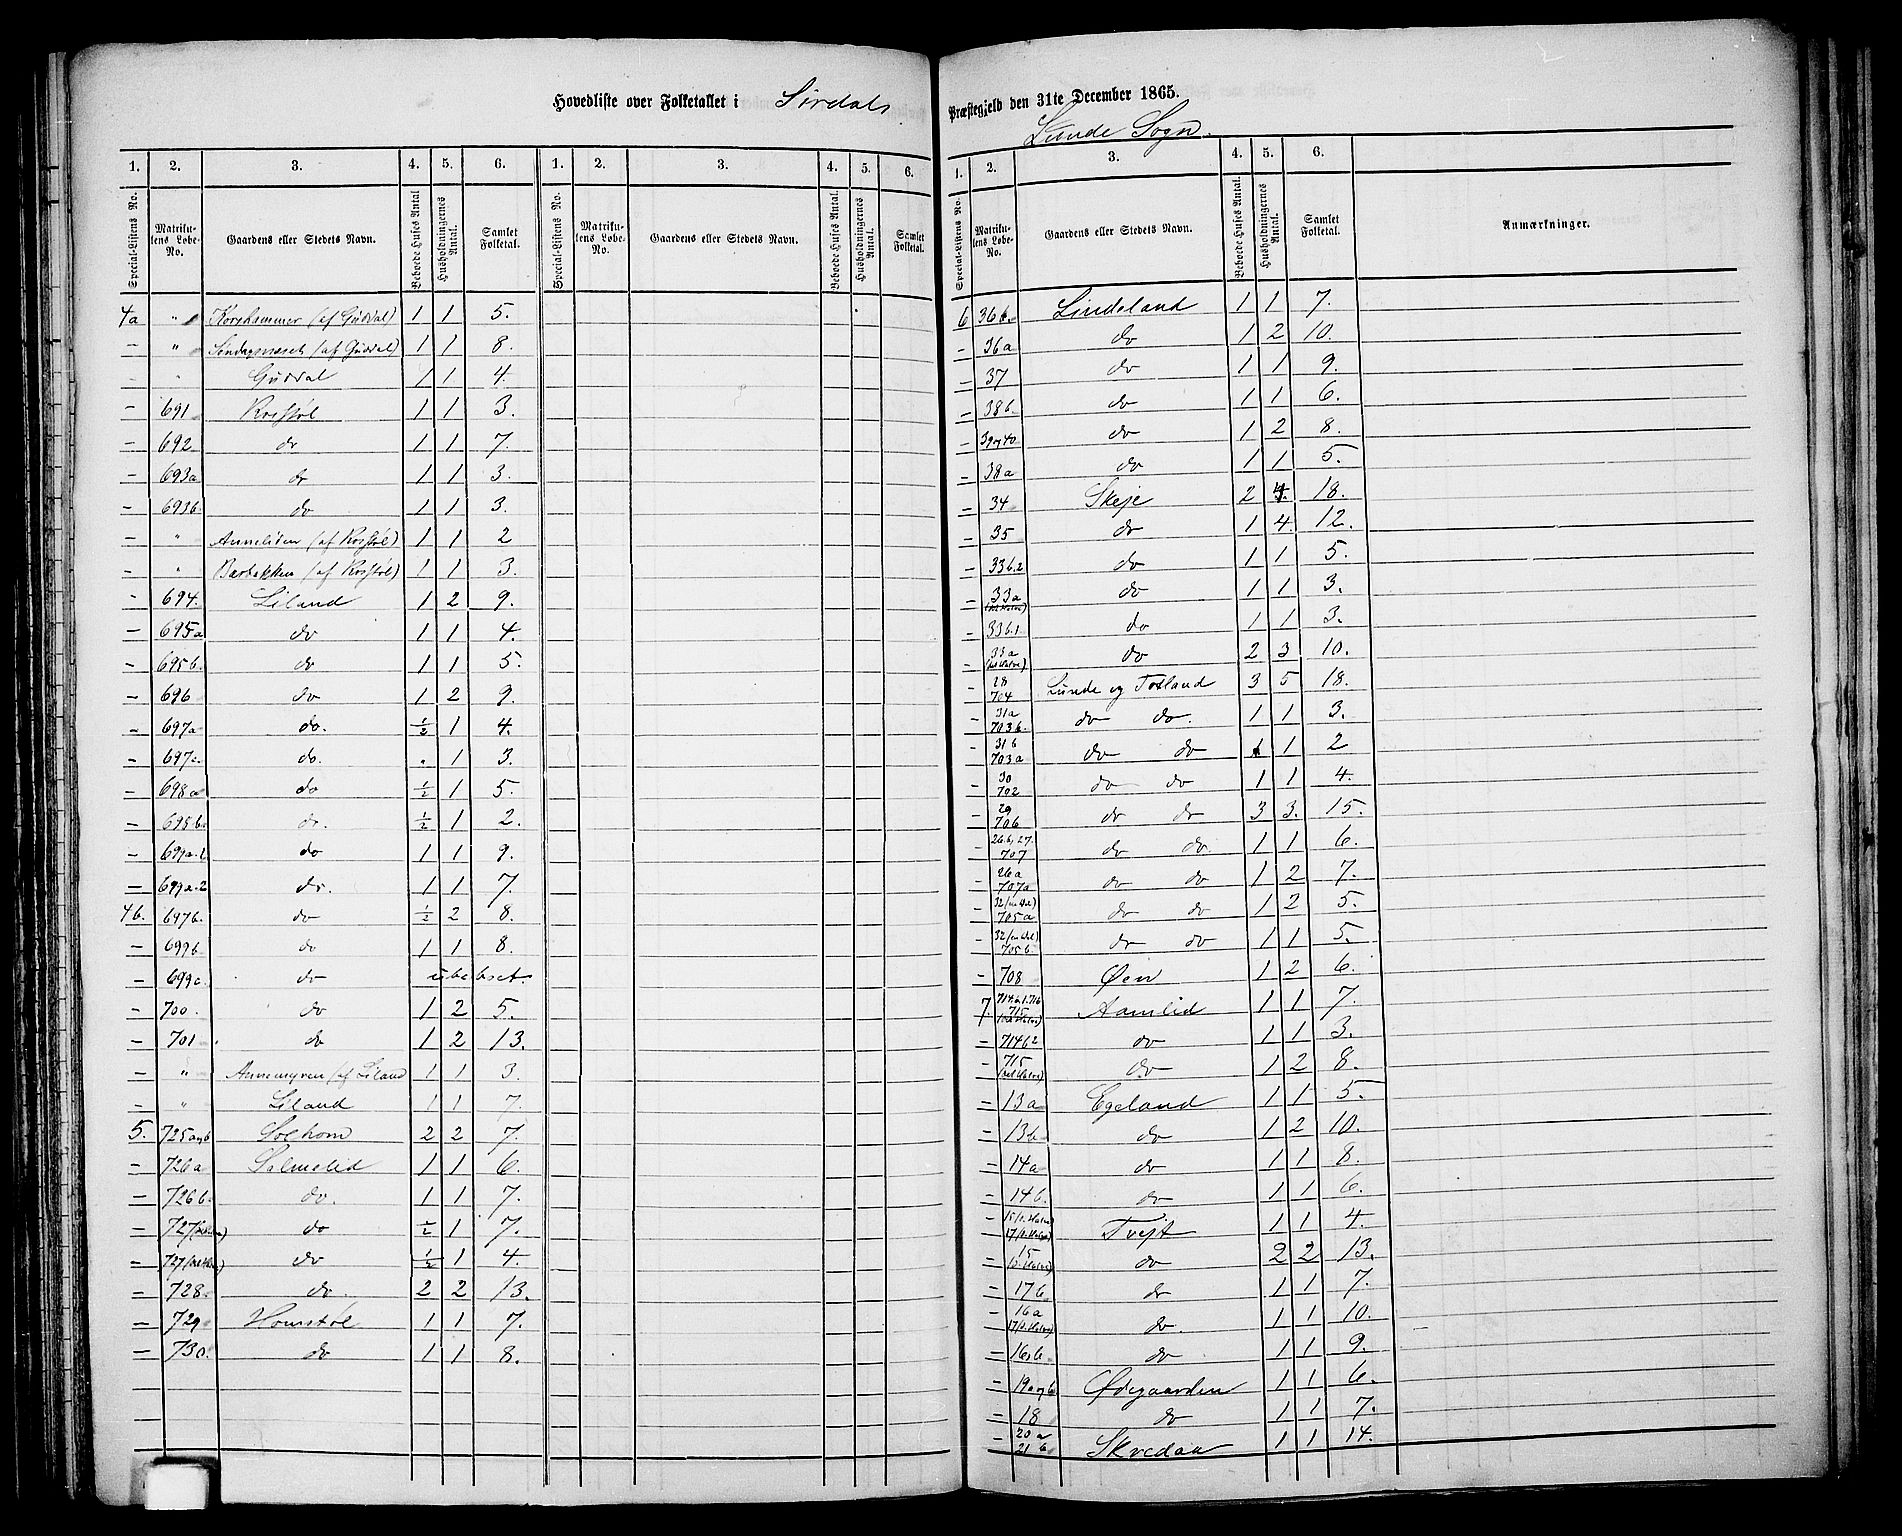 Hovedliste over Folketallet i Sirdals
1. 2. 3. 4. 5. 6. 1. 2. 3. 4. 5. 6.
Special-Listens No. Matrikulens Løbe-No. Gaardens eller Stedets Navn. Beboede Huses Antal. Husholdningernes Antal. Samlet Folketal. Special-Listens No. Matrikulens Løbe-No. Gaardens eller Stedets Navn. Beboede Huses Antal. Husholdningernes Antal. Samlet Folketal.
4a " Korshammer (af Guddal) 1 1 5.
– " Søndagsneset (af Guddal) 1 1 8.
" Guddal 1 1 4.
– 691 Rosstøl 1 1 3.
– 692 do 1 1 7.
– 693a do 1 1 3.
– 693b. do 1 1 3.
– " Anneliden (af Rosstøl) 1 1 2
– " Barbakken (af Rosstøl) 1 1 3.
– 694. Liland 1 2 9.
– 695a do 1 1 4.
– 695b. do 1 1 5.
– 696 do 1 2 9.
– 697a do. 1/2 1 4.
– 697c. do. " 1 3.
– 698a do 1/2 1 5.
– 698b. do. 1/2 1 2.
– 699a.1 do 1 1 9.
– 699a.2 do. 1 1 7.
4b. 697b. do 1/2 2 8.
– 699b. do 1 1 8.
– 699c. do ubeboet.
– 700. do 1 2 5.
– 701. do 1 2 13.
– " Annemyren (af Liland 1 1 3.
– " Liland 1 1 7.
5. 725a og b Solhom 2 2 7.
– 726a Salmelid 1 1 6.
– 726b. do. 1 1 7.
– 727 do 1/2 1 7.
– 727 do 1/2 1 4.
– 728. do. 2 2 13.
– 729 Homstøl 1 1 7.
– 730. do 1 1 8.
Præstegjeld den 31te December 1865.
Lunde Sogn.
1. 2. 3. 4. 5. 6.
Special-Listens No. Matrikulens Løbe-No. Gaardens eller Stedets Navn. Beboede Huses Antal. Husholdningernes Antal. Samlet Folketal. Anmærkninger.
6 36b. Lindeland 1 1 7.
– 36a do 1 2 10.
– 37 do 1 1 9.
– 38b. do 1 1 6.
– 39 og 40 do 1 2 8.
– 38a do 1 1 5.
– 34 Skeje 2 4. 18.
– 35 do 1 4. 12.
– 33b.2 do 1 1 5.
– 33a do 1 1 3.
– 33b.1 do 1 1 3.
– 33a do 2 3 10.
– 28 704 Lunde og Totland 3 5 18.
– 31a 703b. do do. 1 1 3.
– 31b 703a do do 1 1 2
– 30 702 do do 1 1 4.
– 29 706 do do 3 3. 15.
– 26b, 27. 707 do do. 1 1 6.
– 26a 707a do do 1 2 7.
– 32 (en Del) 705a do do 1 2 5.
– 32 (en Del) 705b. do do 1 1 5.
– 708 Øen 1 2 6.
7. 714.b.1. 716 715 Aamlid 1 1 7.
– 714b2 do 1 1 3.
– 715 do 1 2 8.
– 13a Egeland 1 1 5.
– 13b do 1 2 10.
– 14a do 1 1 8.
– 14b. do 1 1 6.
– 15 17 Tvejt 1 1 4.
– 15 do 2 2 13.
– 17b do 1 1 7.
– 16a 17 do. 1 1 10.
– 16b. do 1 1 9.
– 19a og b Ødegaarden 1 1 6.
– 18 do 1 1 7.
– 20a 21b Skredaa 1 1 14.